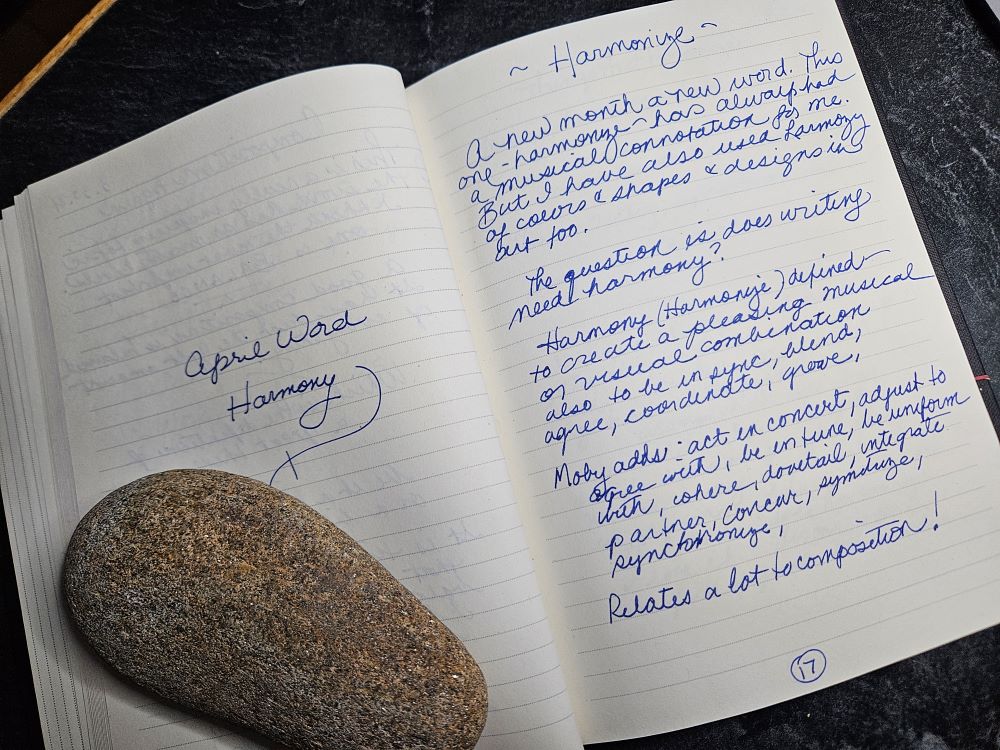 April Word
Harmony
~ Harmonize ~
A new month a new word. This
one - harmonize - has always had
a musical connotation for me.
But I have also used harmony
of colors & shapes & designs in
art too.
The question is does writing
need harmony?
Harmony (Harmonize) defined -
to create a pleasing musical
or visual combination
also to be in sync, blend,
agree, coordinate, groove,
Moby adds: act in concert, adjust to
agree with, be in tune, be uniform
with, cohere, dovetail, integrate
partner, concur, symbolize,
synchronize,
Relates a lot to composition!
17